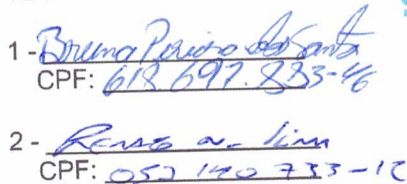 1 - Bruna Pereira dos Santos
CPF: 618 697.833-46
2 - Lima
CPF: 052 140 733-12